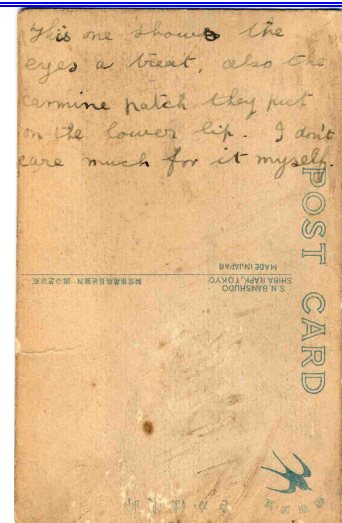 This one shows the
eyes a treat, also the
carmine patch they put
on the lower lip. I don't
care much for it myself.
POST CARD
S.N. BANSHUDO
SHIBA RAPK, TOKYO
MADE IN JAPAN